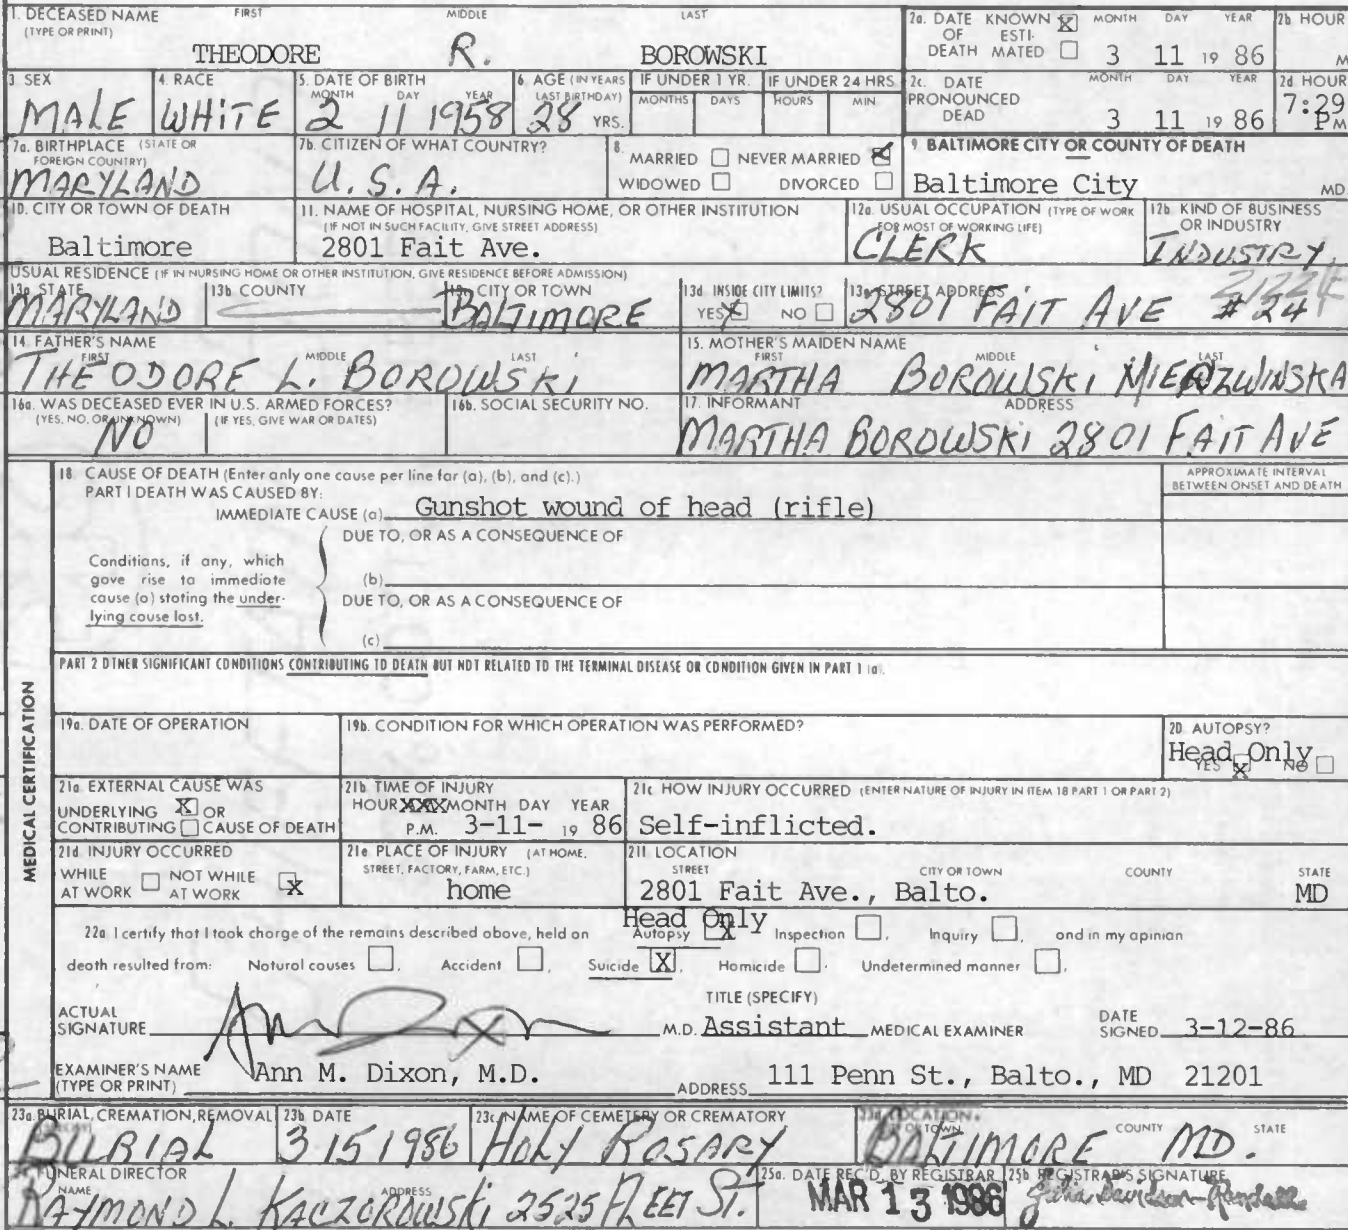 1. DECEASED NAME FIRST MIDDLE LAST
(TYPE OR PRINT)
THEODORE R. BOROWSKI
2a. DATE KNOWN X MONTH DAY YEAR
OF ESTI-
DEATH MATED 3 11 19 86
2b HOUR
M
3 SEX
MALE
4. RACE
WHITE
5. DATE OF BIRTH
MONTH DAY YEAR
2 11 1958
6. AGE (IN YEARS
LAST BIRTHDAY)
28 YRS.
IF UNDER 1 YR.
MONTHS DAYS
IF UNDER 24 HRS
HOURS MIN
2c. DATE MONTH DAY YEAR
PRONOUNCED
DEAD 3 11 19 86
2d HOUR
7:29
PM
7a. BIRTHPLACE (STATE OR
FOREIGN COUNTRY)
MARYLAND
7b. CITIZEN OF WHAT COUNTRY?
U.S.A.
8.
MARRIED NEVER MARRIED X
WIDOWED DIVORCED
9. BALTIMORE CITY OR COUNTY OF DEATH
Baltimore City MD.
10. CITY OR TOWN OF DEATH
Baltimore
11. NAME OF HOSPITAL, NURSING HOME, OR OTHER INSTITUTION
(IF NOT IN SUCH FACILITY, GIVE STREET ADDRESS)
2801 Fait Ave.
12a. USUAL OCCUPATION (TYPE OF WORK
FOR MOST OF WORKING LIFE)
CLERK
12b. KIND OF BUSINESS
OR INDUSTRY
INDUSTRY
USUAL RESIDENCE (IF IN NURSING HOME OR OTHER INSTITUTION, GIVE RESIDENCE BEFORE ADMISSION)
13a. STATE
MARYLAND
13b COUNTY
13c. CITY OR TOWN
BALTIMORE
13d INSIDE CITY LIMITS?
YES X NO
13e STREET ADDRESS
21224
2801 FAIT AVE #24
14. FATHER'S NAME
FIRST MIDDLE LAST
THEODORE L. BOROWSKI
15. MOTHER'S MAIDEN NAME
FIRST MIDDLE LAST
MARTHA BOROWSKI
16a. WAS DECEASED EVER IN U.S. ARMED FORCES?
(YES, NO, OR UNKNOWN) (IF YES, GIVE WAR OR DATES)
NO
16b. SOCIAL SECURITY NO.
17. INFORMANT ADDRESS
MARTHA BOROWSKI 2801 FAIT AVE
MEDICAL CERTIFICATION
18 CAUSE OF DEATH (Enter only one cause per line for (a), (b), and (c).)
PART I DEATH WAS CAUSED BY:
IMMEDIATE CAUSE (a) Gunshot wound of head (rifle)
APPROXIMATE INTERVAL
BETWEEN ONSET AND DEATH
DUE TO, OR AS A CONSEQUENCE OF
Conditions, if any, which
gave rise to immediate
cause (a) stating the under-
lying cause last.
(b)
DUE TO, OR AS A CONSEQUENCE OF
(c)
PART 2 OTHER SIGNIFICANT CONDITIONS CONTRIBUTING TO DEATH BUT NOT RELATED TO THE TERMINAL DISEASE OR CONDITION GIVEN IN PART 1 (a).
19a. DATE OF OPERATION
19b. CONDITION FOR WHICH OPERATION WAS PERFORMED?
20. AUTOPSY?
Head Only
YES X NO
21a EXTERNAL CAUSE WAS
UNDERLYING X OR
CONTRIBUTING CAUSE OF DEATH
21b TIME OF INJURY
HOUR XXX MONTH DAY YEAR
P.M. 3-11- 19 86
21c HOW INJURY OCCURRED (ENTER NATURE OF INJURY IN ITEM 18 PART 1 OR PART 2)
Self-inflicted.
21d INJURY OCCURRED
WHILE NOT WHILE
AT WORK AT WORK X
21e PLACE OF INJURY (AT HOME,
STREET, FACTORY, FARM, ETC.)
home
21f. LOCATION
STREET CITY OR TOWN COUNTY STATE
2801 Fait Ave., Balto. MD
Head Only
22a I certify that I took charge of the remains described above, held on Autopsy X Inspection , Inquiry , and in my opinion
death resulted from: Natural causes , Accident , Suicide X , Homicide . Undetermined manner ,
TITLE (SPECIFY)
ACTUAL
SIGNATURE Ann Dixon M.D. Assistant MEDICAL EXAMINER
DATE
SIGNED 3-12-86
EXAMINER'S NAME
(TYPE OR PRINT) Ann M. Dixon, M.D.
ADDRESS 111 Penn St., Balto., MD 21201
23a. BURIAL, CREMATION, REMOVAL
BURIAL
23b DATE
3 15 1986
23c. NAME OF CEMETERY OR CREMATORY
HOLY ROSARY
23d LOCATION
CITY OR TOWN COUNTY STATE
BALTIMORE MD.
FUNERAL DIRECTOR
NAME ADDRESS
RAYMOND L. KACZOROWSKI 2525 FLEET ST.
25a. DATE REC'D. BY REGISTRAR
MAR 13 1986
25b REGISTRAR'S SIGNATURE
Julia Davidson-Randall